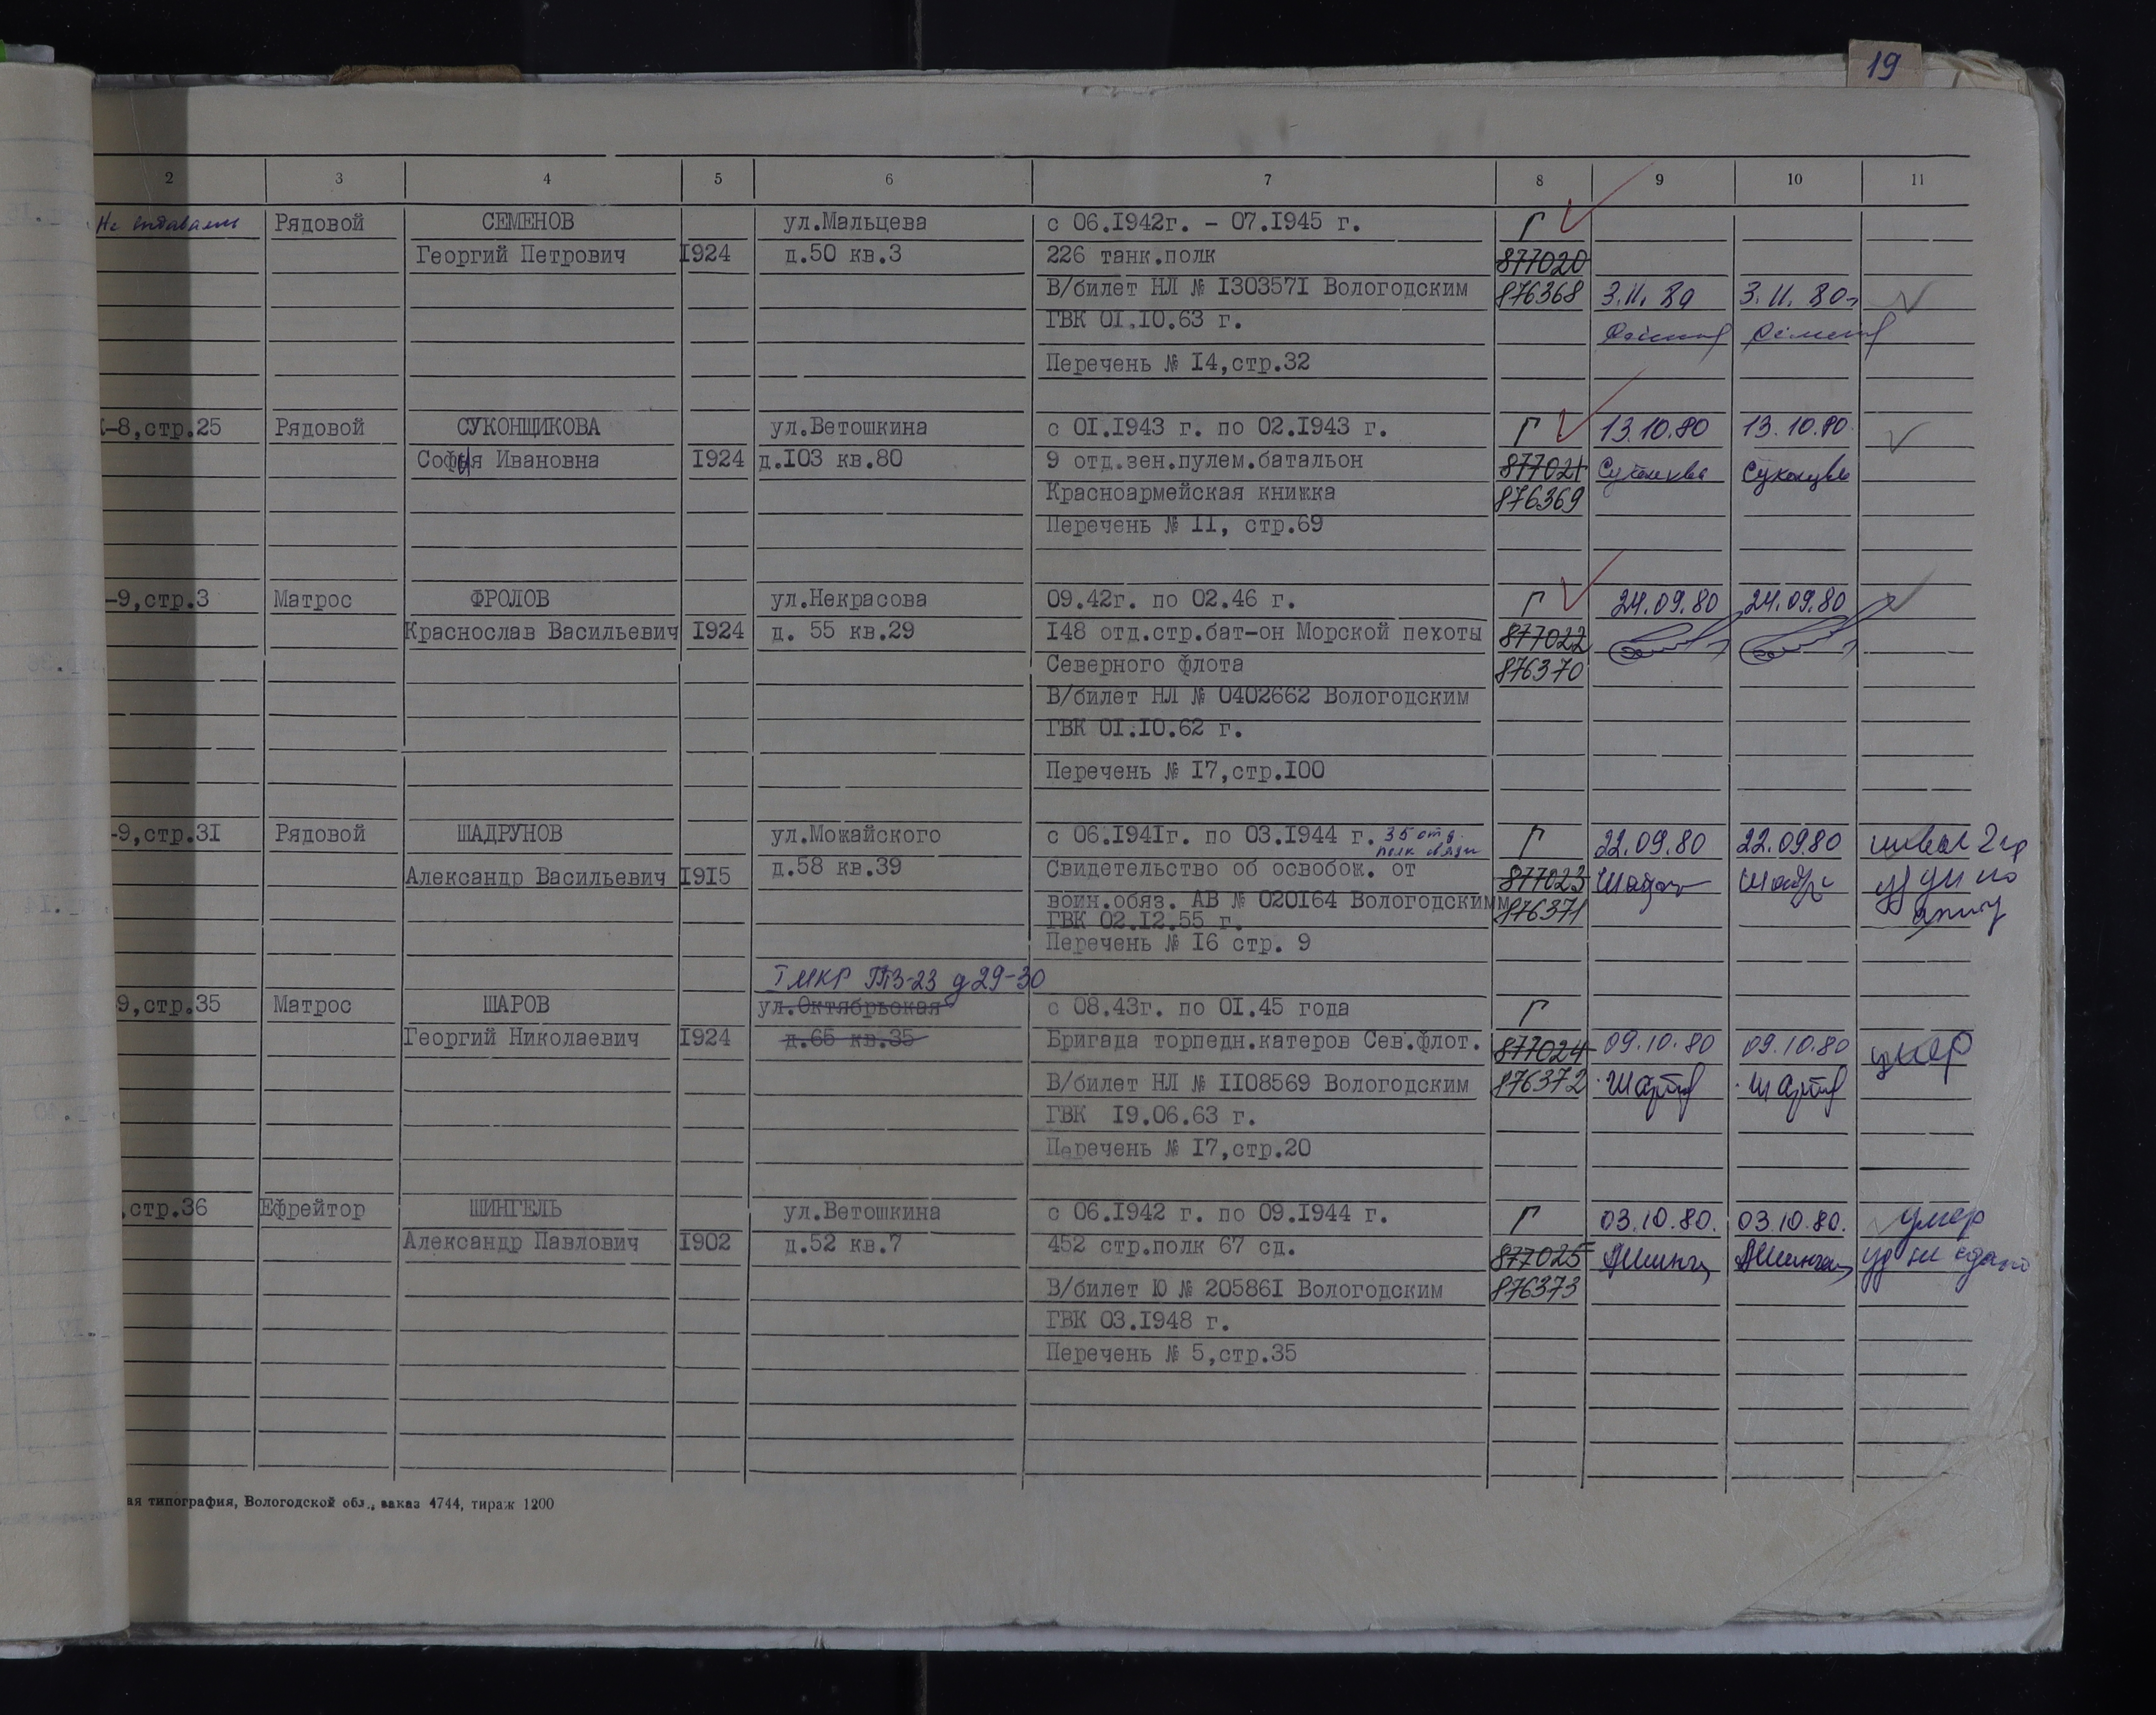 19
2 3 4 5 6 7 8 9 10 11
Не Рядовой СЕМЕНОВ ул.Мальцева с 06.1942г. – 07.1945 г. Г
Георгий Петрович 1924 д.50 кв.3 226 танк.полк 877020
В/билет НЛ № 1303571 Вологодским 876368 3.11.80 3.11.80
ГВК 01.10.63 г.
Перечень № 14,стр.32
-8,стр.25 Рядовой СУКОНЩИКОВА ул.Ветошкина с 01.1943 г. по 02.1943 г. Г 13.10.80 13.10.80
Софья Ивановна 1924 д.103 кв.80 9 отд.зен.пулем.батальон 877021
Красноармейская книжка 876369
Перечень № 11, стр.69
-9,стр.3 Матрос ФРОЛОВ ул.Некрасова 09.42г. по 02.46 г. Г 24.09.80 24.09.80
Краснослав Васильевич 1924 д. 55 кв.29 148 отд.стр.бат-он Морской пехоты 877022
Северного флота 876370
В/билет НЛ № 0402662 Вологодским
ГВК 01.10.62 г.
Перечень № 17,стр.100
-9,стр.31 Рядовой ШАДРУНОВ ул.Можайского с 06.1941г. по 03.1944 г. 35 отд. полк связи Г 22.09.80 22.09.80
Александр Васильевич 1915 д.58 кв.39 Свидетельство об освобож. от 877023
воин.обяз. АВ № 020164 Вологодскимм 876371
ГВК 02.12.55 г.
Перечень № 16 стр. 9
1 МКР ГПЗ-23 д 29-30
9,стр.35 Матрос ШАРОВ ул.Октябрьская с 08.43г. по 01.45 года Г
Георгий Николаевич 1924 д.65 кв.35 Бригада торпедн.катеров Сев.флот. 877024 09.10.80 09.10.80 умер
В/билет НЛ № 1108569 Вологодским 876372
ГВК 19.06.63 г.
Перечень № 17,стр.20
,стр.36 Ефрейтор ШИНГЕЛЬ ул.Ветошкина с 06.1942 г. по 09.1944 г. Г 03.10.80. 03.10.80. умер
Александр Павлович 1902 д.52 кв.7 452 стр.полк 67 сд. 877025 уд не сдано
В/билет Ю № 205861 Вологодским 876373
ГВК 03.1948 г.
Перечень № 5,стр.35
ая типография, Вологодской обл., заказ 4744, тираж 1200